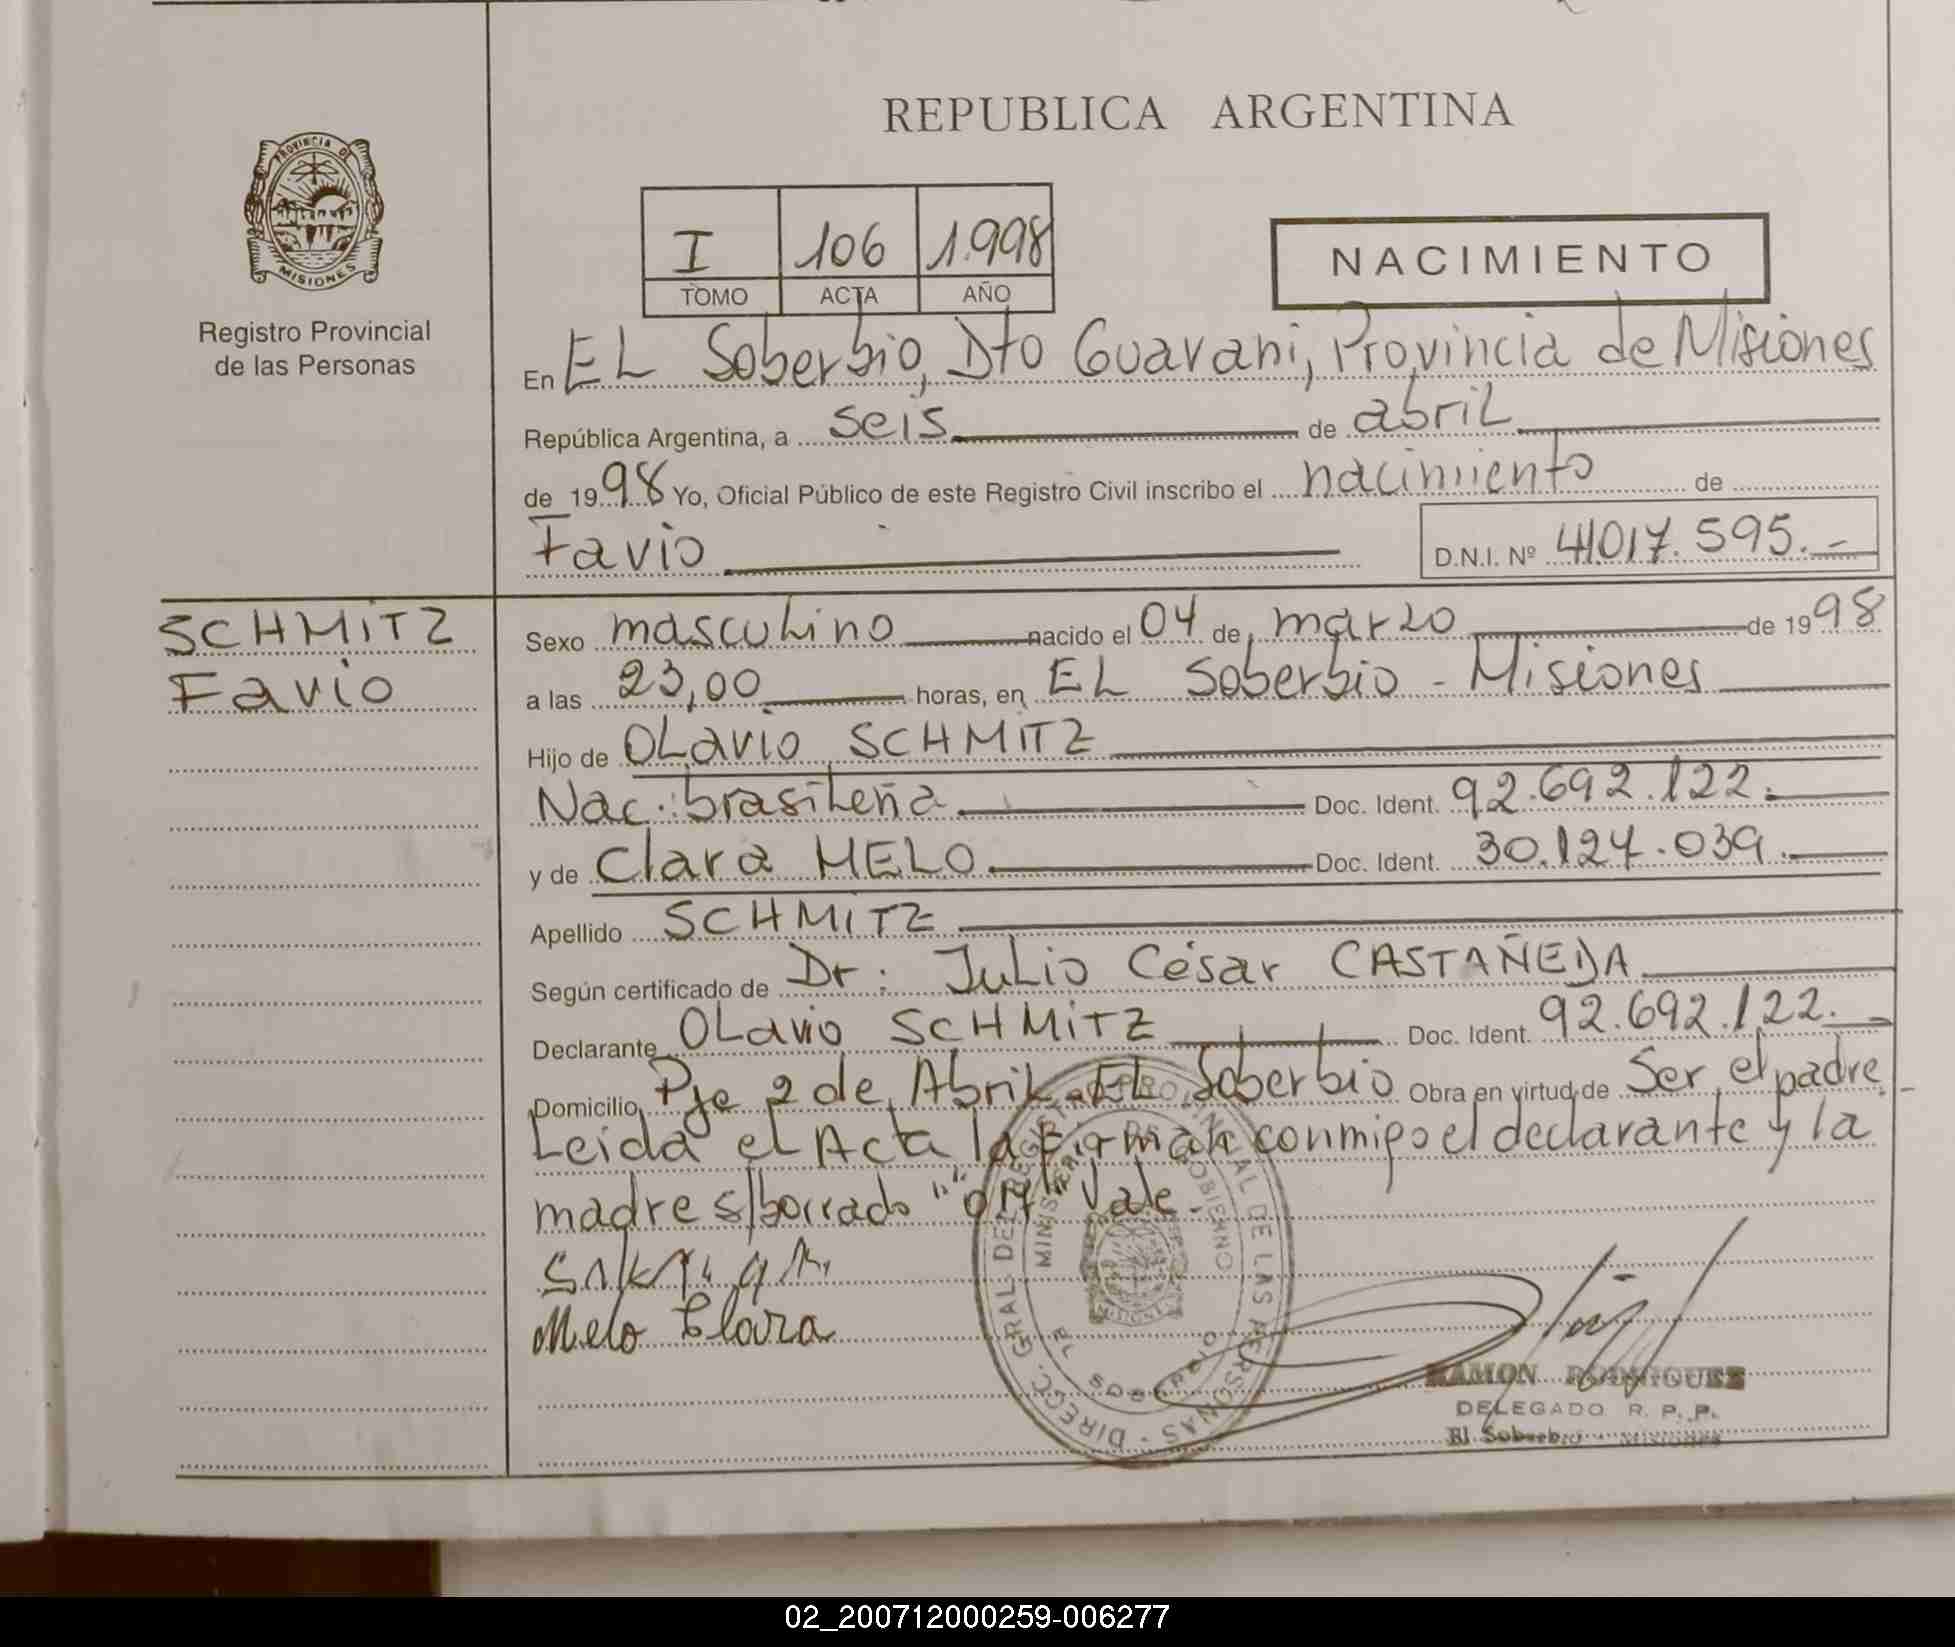 REPUBLICA ARGENTINA
PROVINCIA DE
MISIONES
Registro Provincial
de las Personas
I 106 1.998
TOMO ACTA AÑO
NACIMIENTO
En EL Soberbio, Dto Guarani, Provincia de Misiones
República Argentina, a seis de abril
de 1998 Yo, Oficial Público de este Registro Civil inscribo el nacimiento de
Favio D.N.I. Nº 41.017.595.-
SCHMITZ
Favio
Sexo masculino nacido el 04 de marzo de 1998
a las 23,00 horas, en EL Soberbio - Misiones
Hijo de OLavio SCHMITZ
Nac. brasileña Doc. Ident. 92.692.122.
y de Clara MELO Doc. Ident. 30.124.039.
Apellido SCHMITZ
Según certificado de Dr: Julio César CASTAÑEDA
Declarante OLavio SCHMITZ Doc. Ident. 92.692.122.
Domicilio Pje 2 de Abril - EL Soberbio Obra en virtud de Ser el padre
Leida el Acta la firman conmigo el declarante y la
madre s/borrado Vale.
Melo Clara
DIRECC. GRAL DEL REGISTRO PROVINCIAL DE LAS PERSONAS
EL SOBERBIO
RAMON RODRIGUEZ
DELEGADO R. P. P.
El Soberbio - MISIONES
02_200712000259-006277